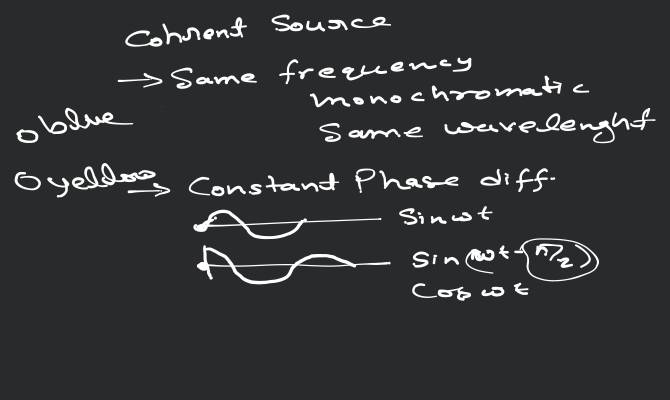 Cohrent Source
→ Same frequency
monochromatic
o blue
Same wavelenght
O yellow
→ Constant Phase diff.
Sin ωt
Sin (ωt - π/2)
Cos ωt